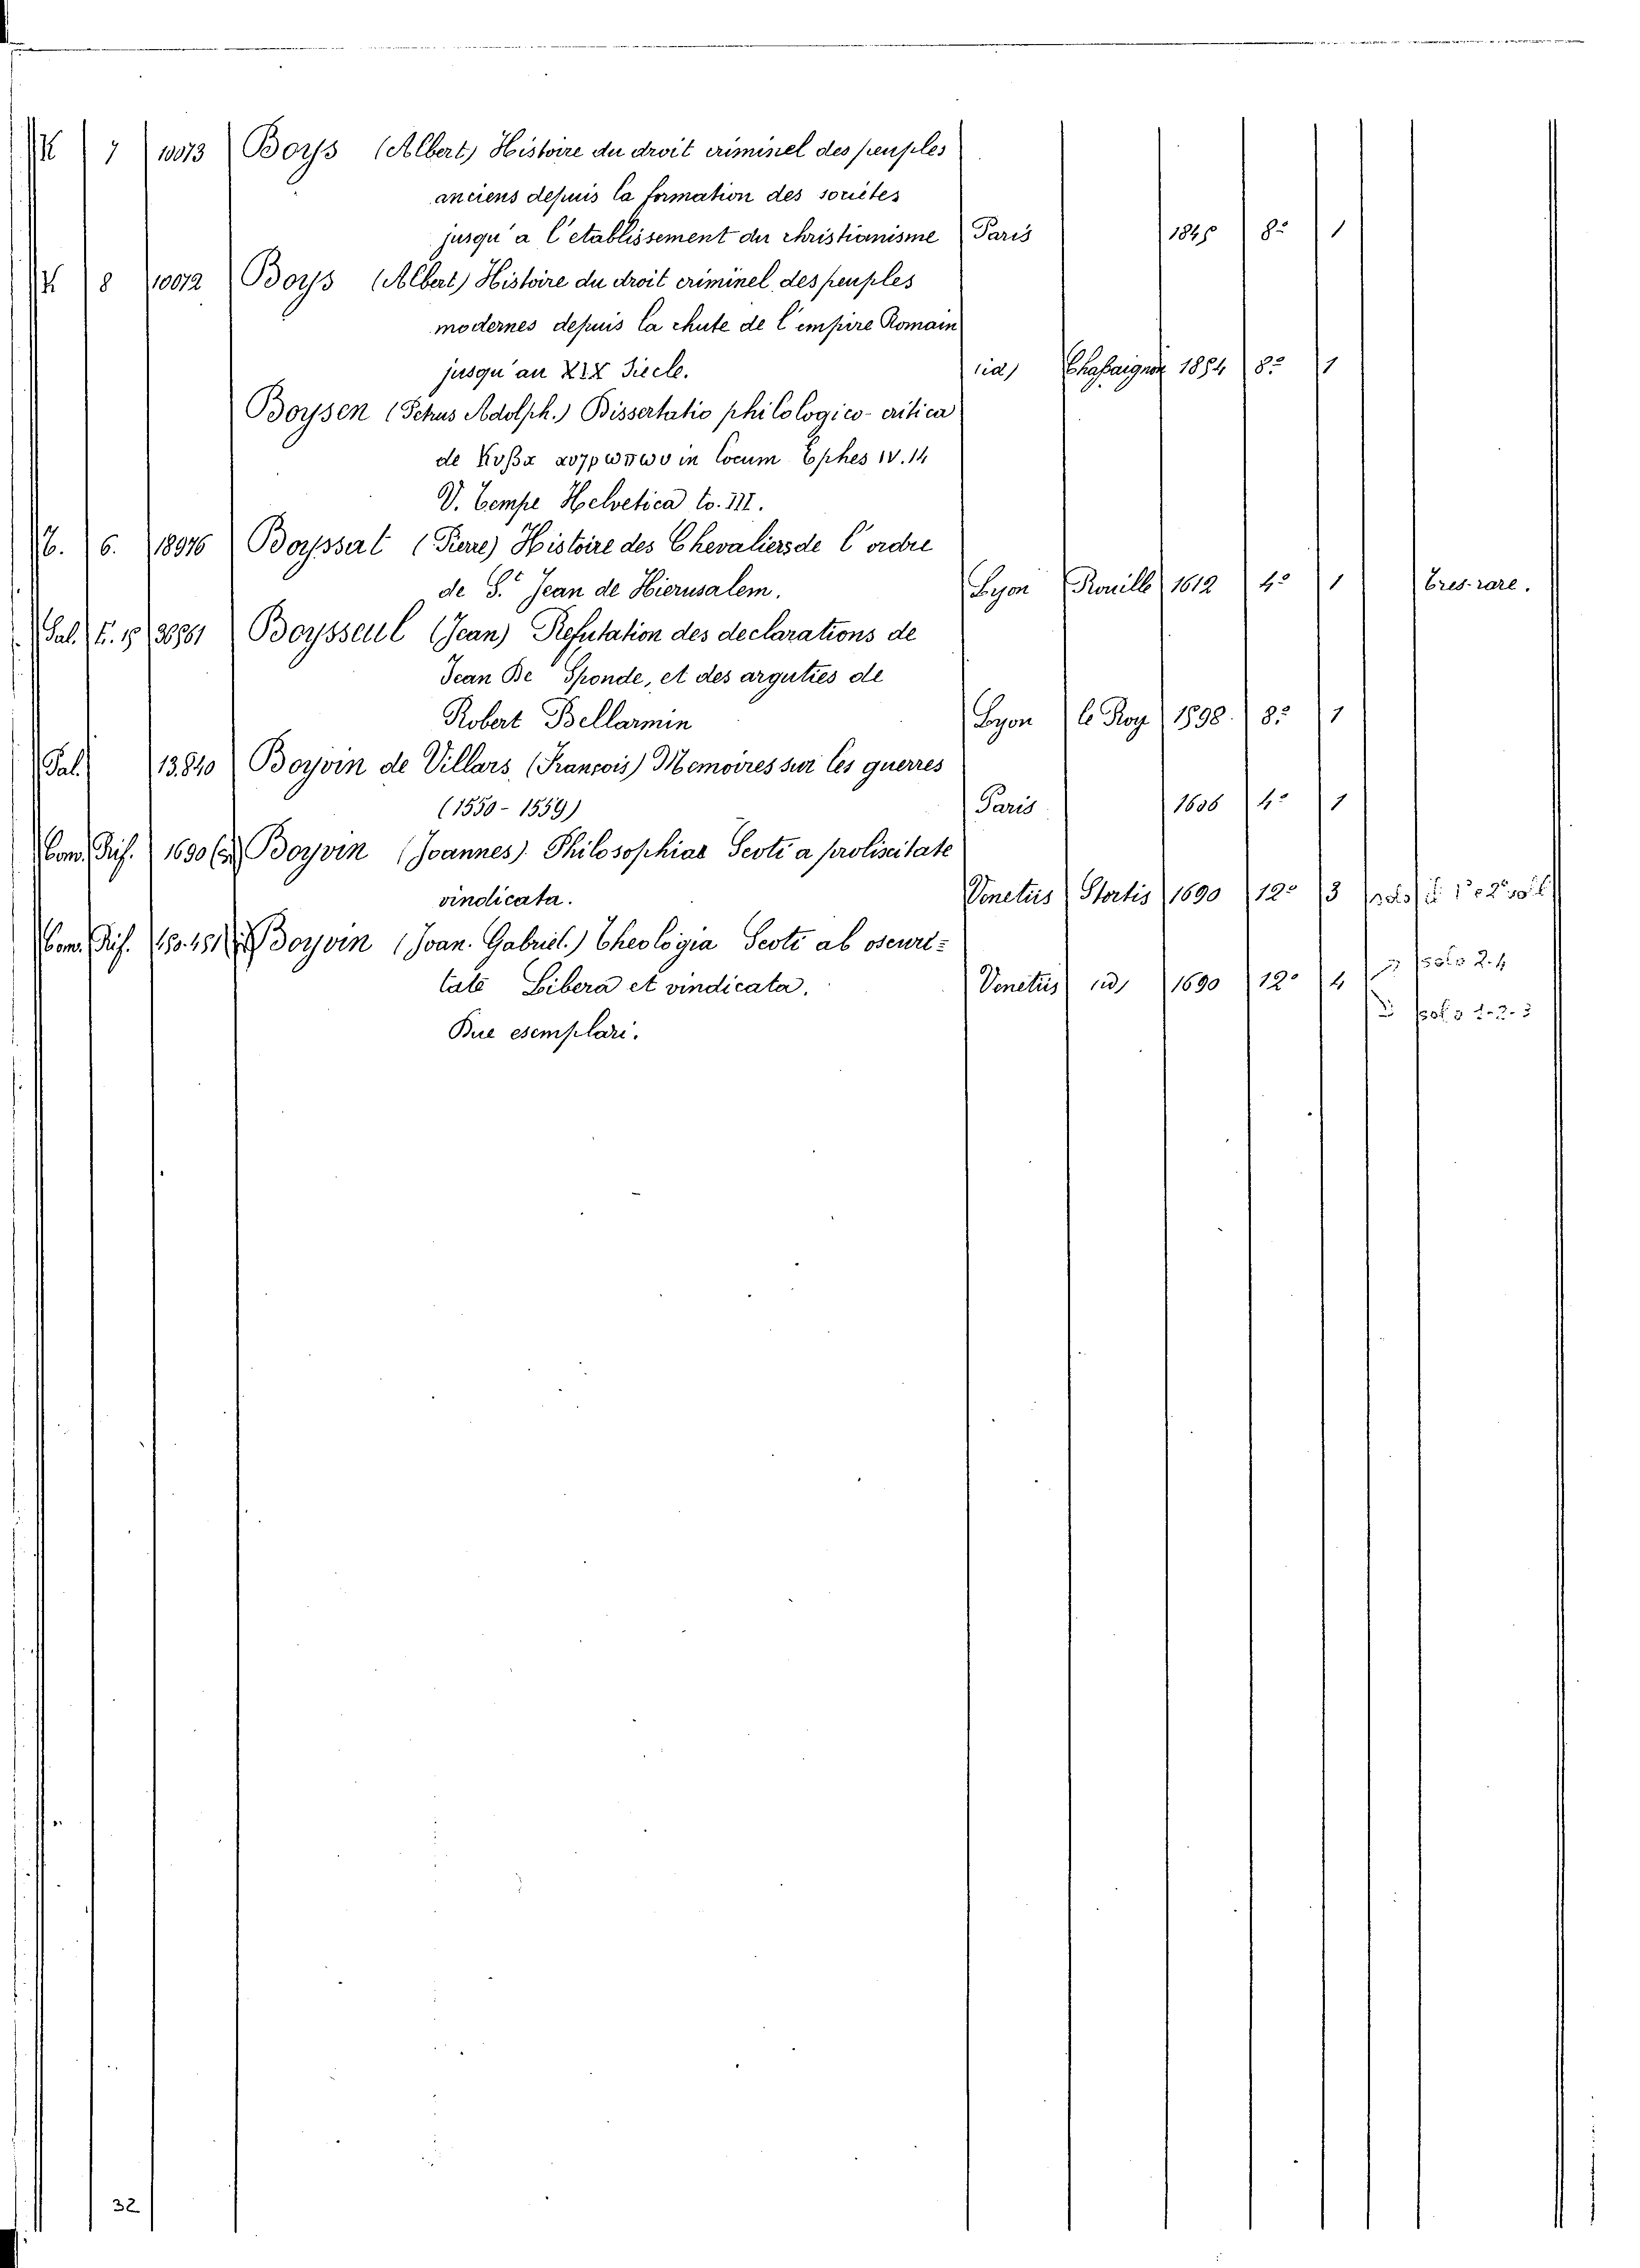 K 7 10073 Boys (Albert) Histoire du droit criminel des peuples
anciens depuis la formation des sociétes
jusqu'a l'etablissement du christianisme Paris 1845 8° 1
K 8 10072 Boys (Albert) Histoire du droit criminel des peuples
modernes depuis la chute de l'empire Romain
jusqu'au XIX Siecle. (id) 1854 8° 1
Boysen (Petrus Adolph.) Dissertatio philologico-critica
de in locum Ephes IV. 14
V. Tempe Helvetica to. III.
6. 6. 18976 Boyssat (Pierre) Histoire des Chevaliers de l'ordre
de S.t Jean de Hierusalem. Lyon Rouille 1612 4° 1 Tres-rare.
Sal. Boysseul (Jean) Refutation des declarations de
Jean De Sponde, et des arguties de
Robert Bellarmin Lyon le Roy 1598. 8° 1
Sal. 13.840 Boyvin de Villars (François) Memoires sur les guerres
(1550-1559) Paris 1606 4° 1
Com. Rif. 1690 Boyvin (Joannes) Philosophiae Scoti a proliscitate
vindicata. Venetiis Stortis 1690 12° 3
Com. Rif. Boyvin (Joan. Gabriel.) Theologia Scoti ab oscuri=
tate Libera et vindicata. Venetiis id, 1690 12° 4 solo 2.4
Due esemplari. 1-2-3
32